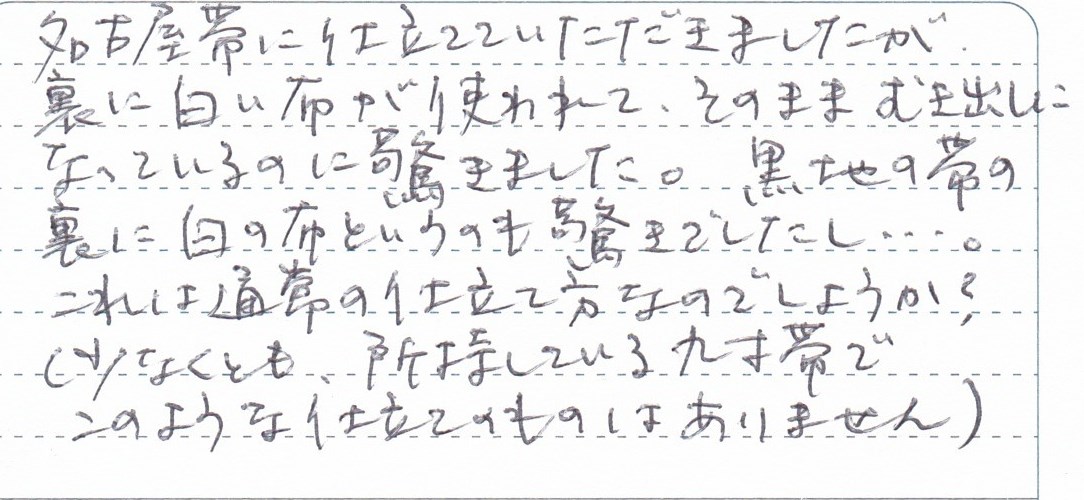 名古屋帯に仕立てていただきましたが、
裏に白い布が使われて、そのままむき出しに
なっているのに驚きました。黒地の帯の
裏に白の布というのも驚きでしたし…。
これは通常の仕立て方なのでしょうか?
(少なくとも、所持している九寸帯で
このような仕立てのものはありません)